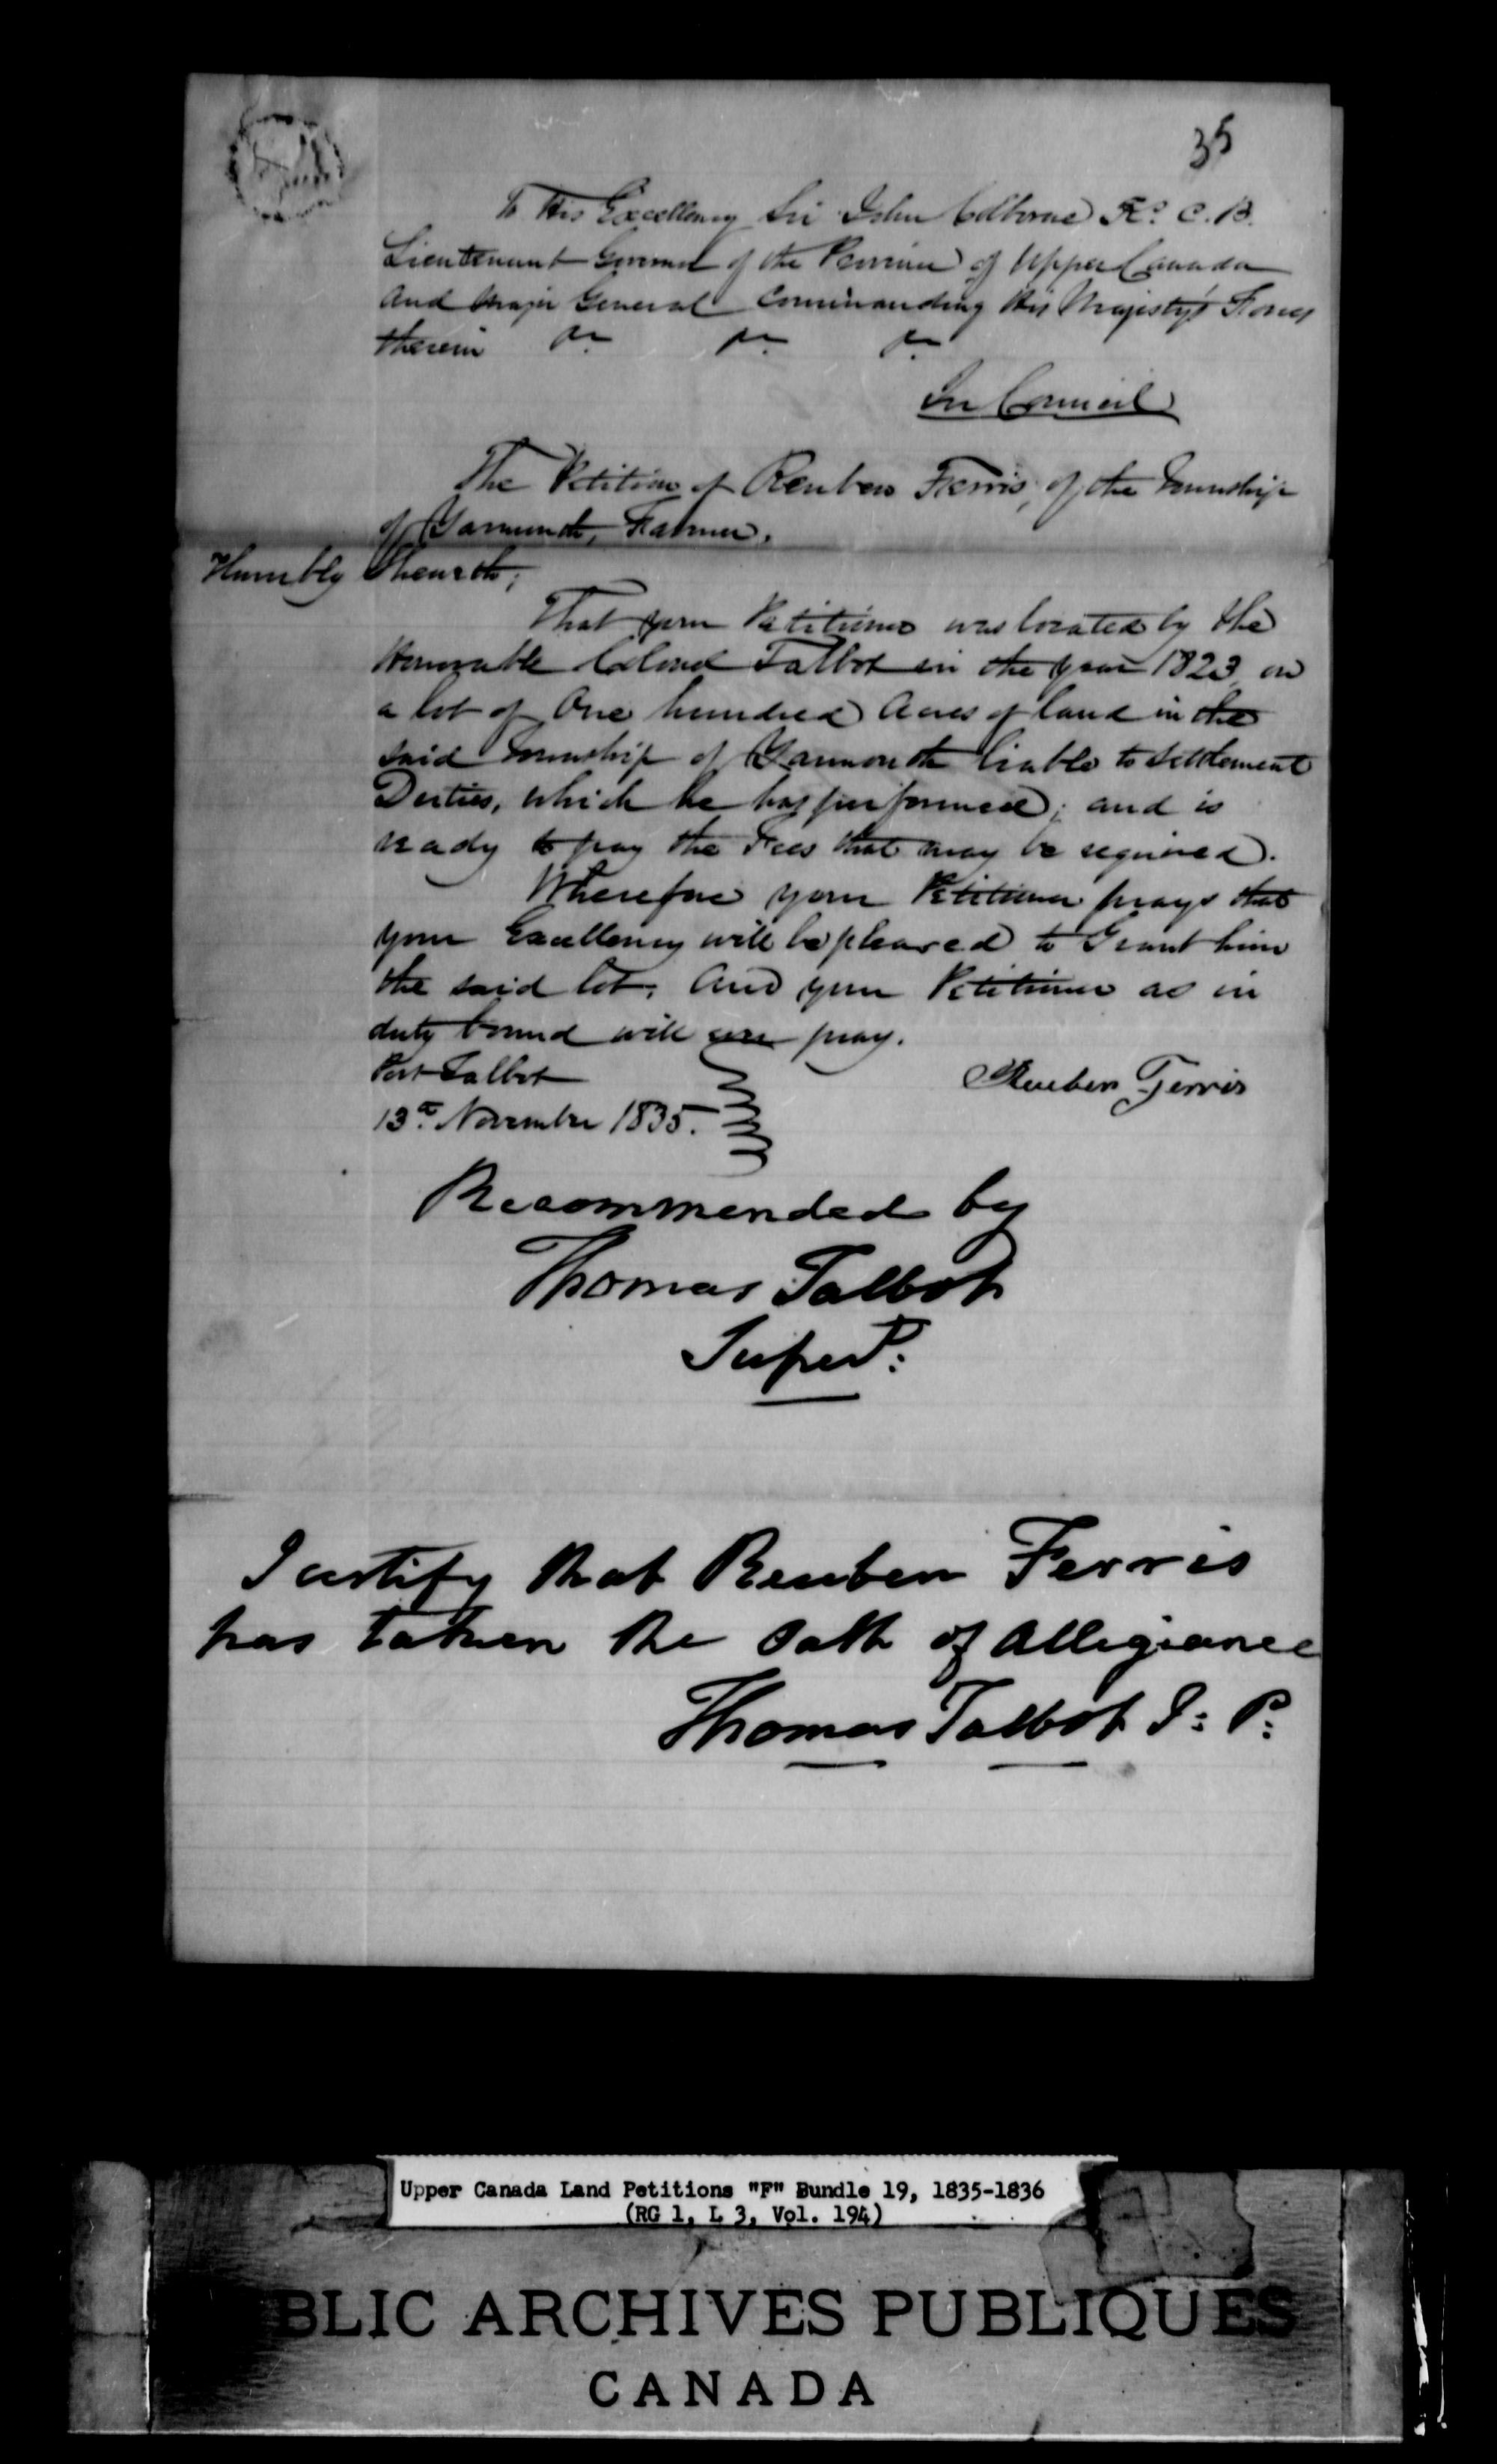 35
To His Excellency Sir John Colborne K. C. B.
Lieutenant Governor of the Province of Upper Canada
and Major General Commanding His Majesty's Forces
therein &c &c &c
In Council
The Petition of Reuben Ferris, of the Township
of Yarmouth, Farmer.
Humbly Sheweth;
That your Petitioner was located by the
Honorable Colonel Talbot in the year 1823 on
a lot of One hundred Acres of land in the
said Township of Yarmouth liable to Settlement
Duties, which he has performed; and is
ready to pay the Fees that may be required.
Wherefore your Petitioner prays that
your Excellency will be pleased to Grant him
the said lot, And your Petitioner as in
duty bound will ever pray.
Port Talbot
Reuben Ferris
13th November 1835.
Recommended by
Thomas Talbot
Supert:
I certify that Reuben Ferris
has taken the Oath of Allegiance
Thomas Talbot J: P:
Upper Canada Land Petitions "F" Bundle 19, 1835-1836
(RG 1, L 3, Vol. 194)
BLIC ARCHIVES PUBLIQUES
CANADA